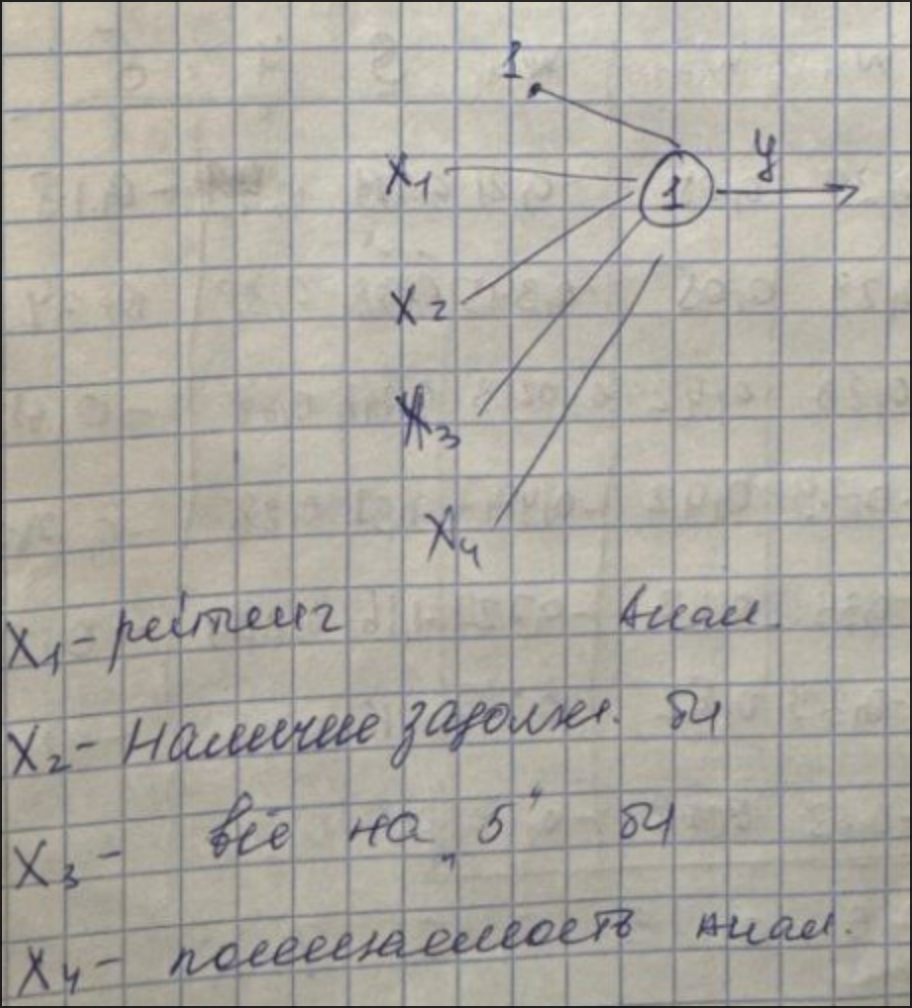 1
X₁
1
y
X₂
X₃
X₄
X₁ - рейтинг Анал.
X₂ - Наличие задолж. БЧ
X₃ - всё на „5“ БЧ
X₄ - посещаемость Анал.